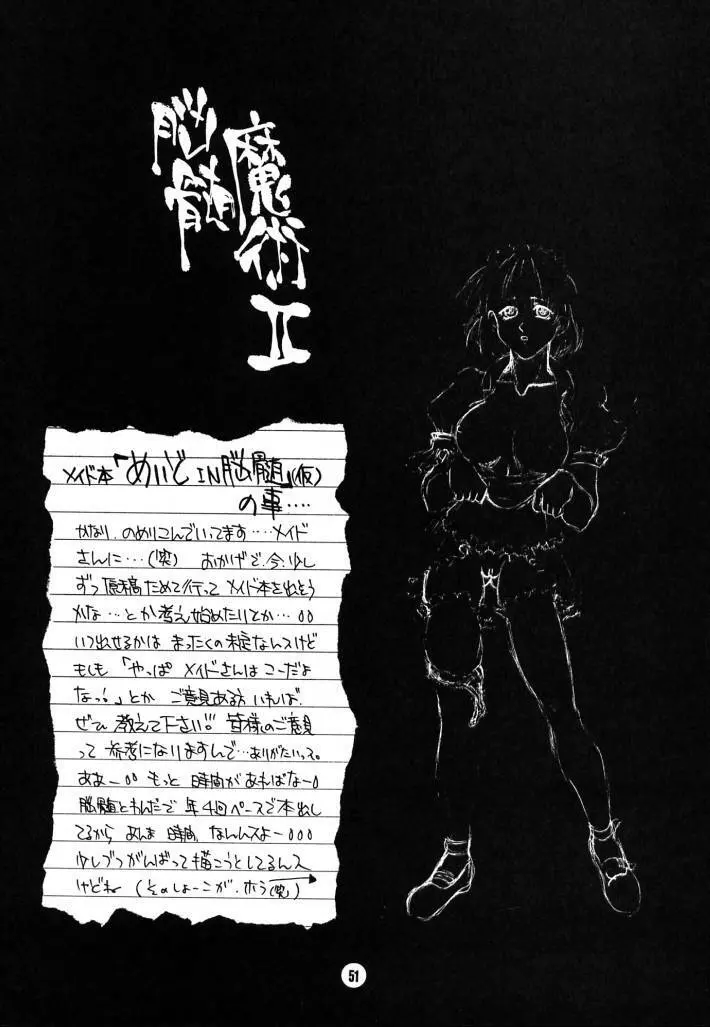 脳髄
魔術
II
メイド本「めいど IN 脳髄」(仮)
の事‥‥
かなり、のめりこんでいってます‥‥メイド
さんに‥‥(笑) おかげで、今、少し
ずつ原稿ためて行って メイド本を出そう
かな‥‥とか考え始めたりとか‥‥
いつ出せるかは まったくの未定なんスけど
もしも 「やっぱ メイドさんは こーだよ
なっ!」とか ご意見ある方 いれば、
ぜひ 教えて下さい!! 皆様のご意見
って 参考になりますんで‥‥ありがたいっス。
ああー もっと 時間が あればなー
脳髄と で 年4回ペースで本出し
てるから あんま 時間 なんスよー
少しづつがんばって描こうとしてるんス
けどね (そのしょーこが、ホラ(笑))
51